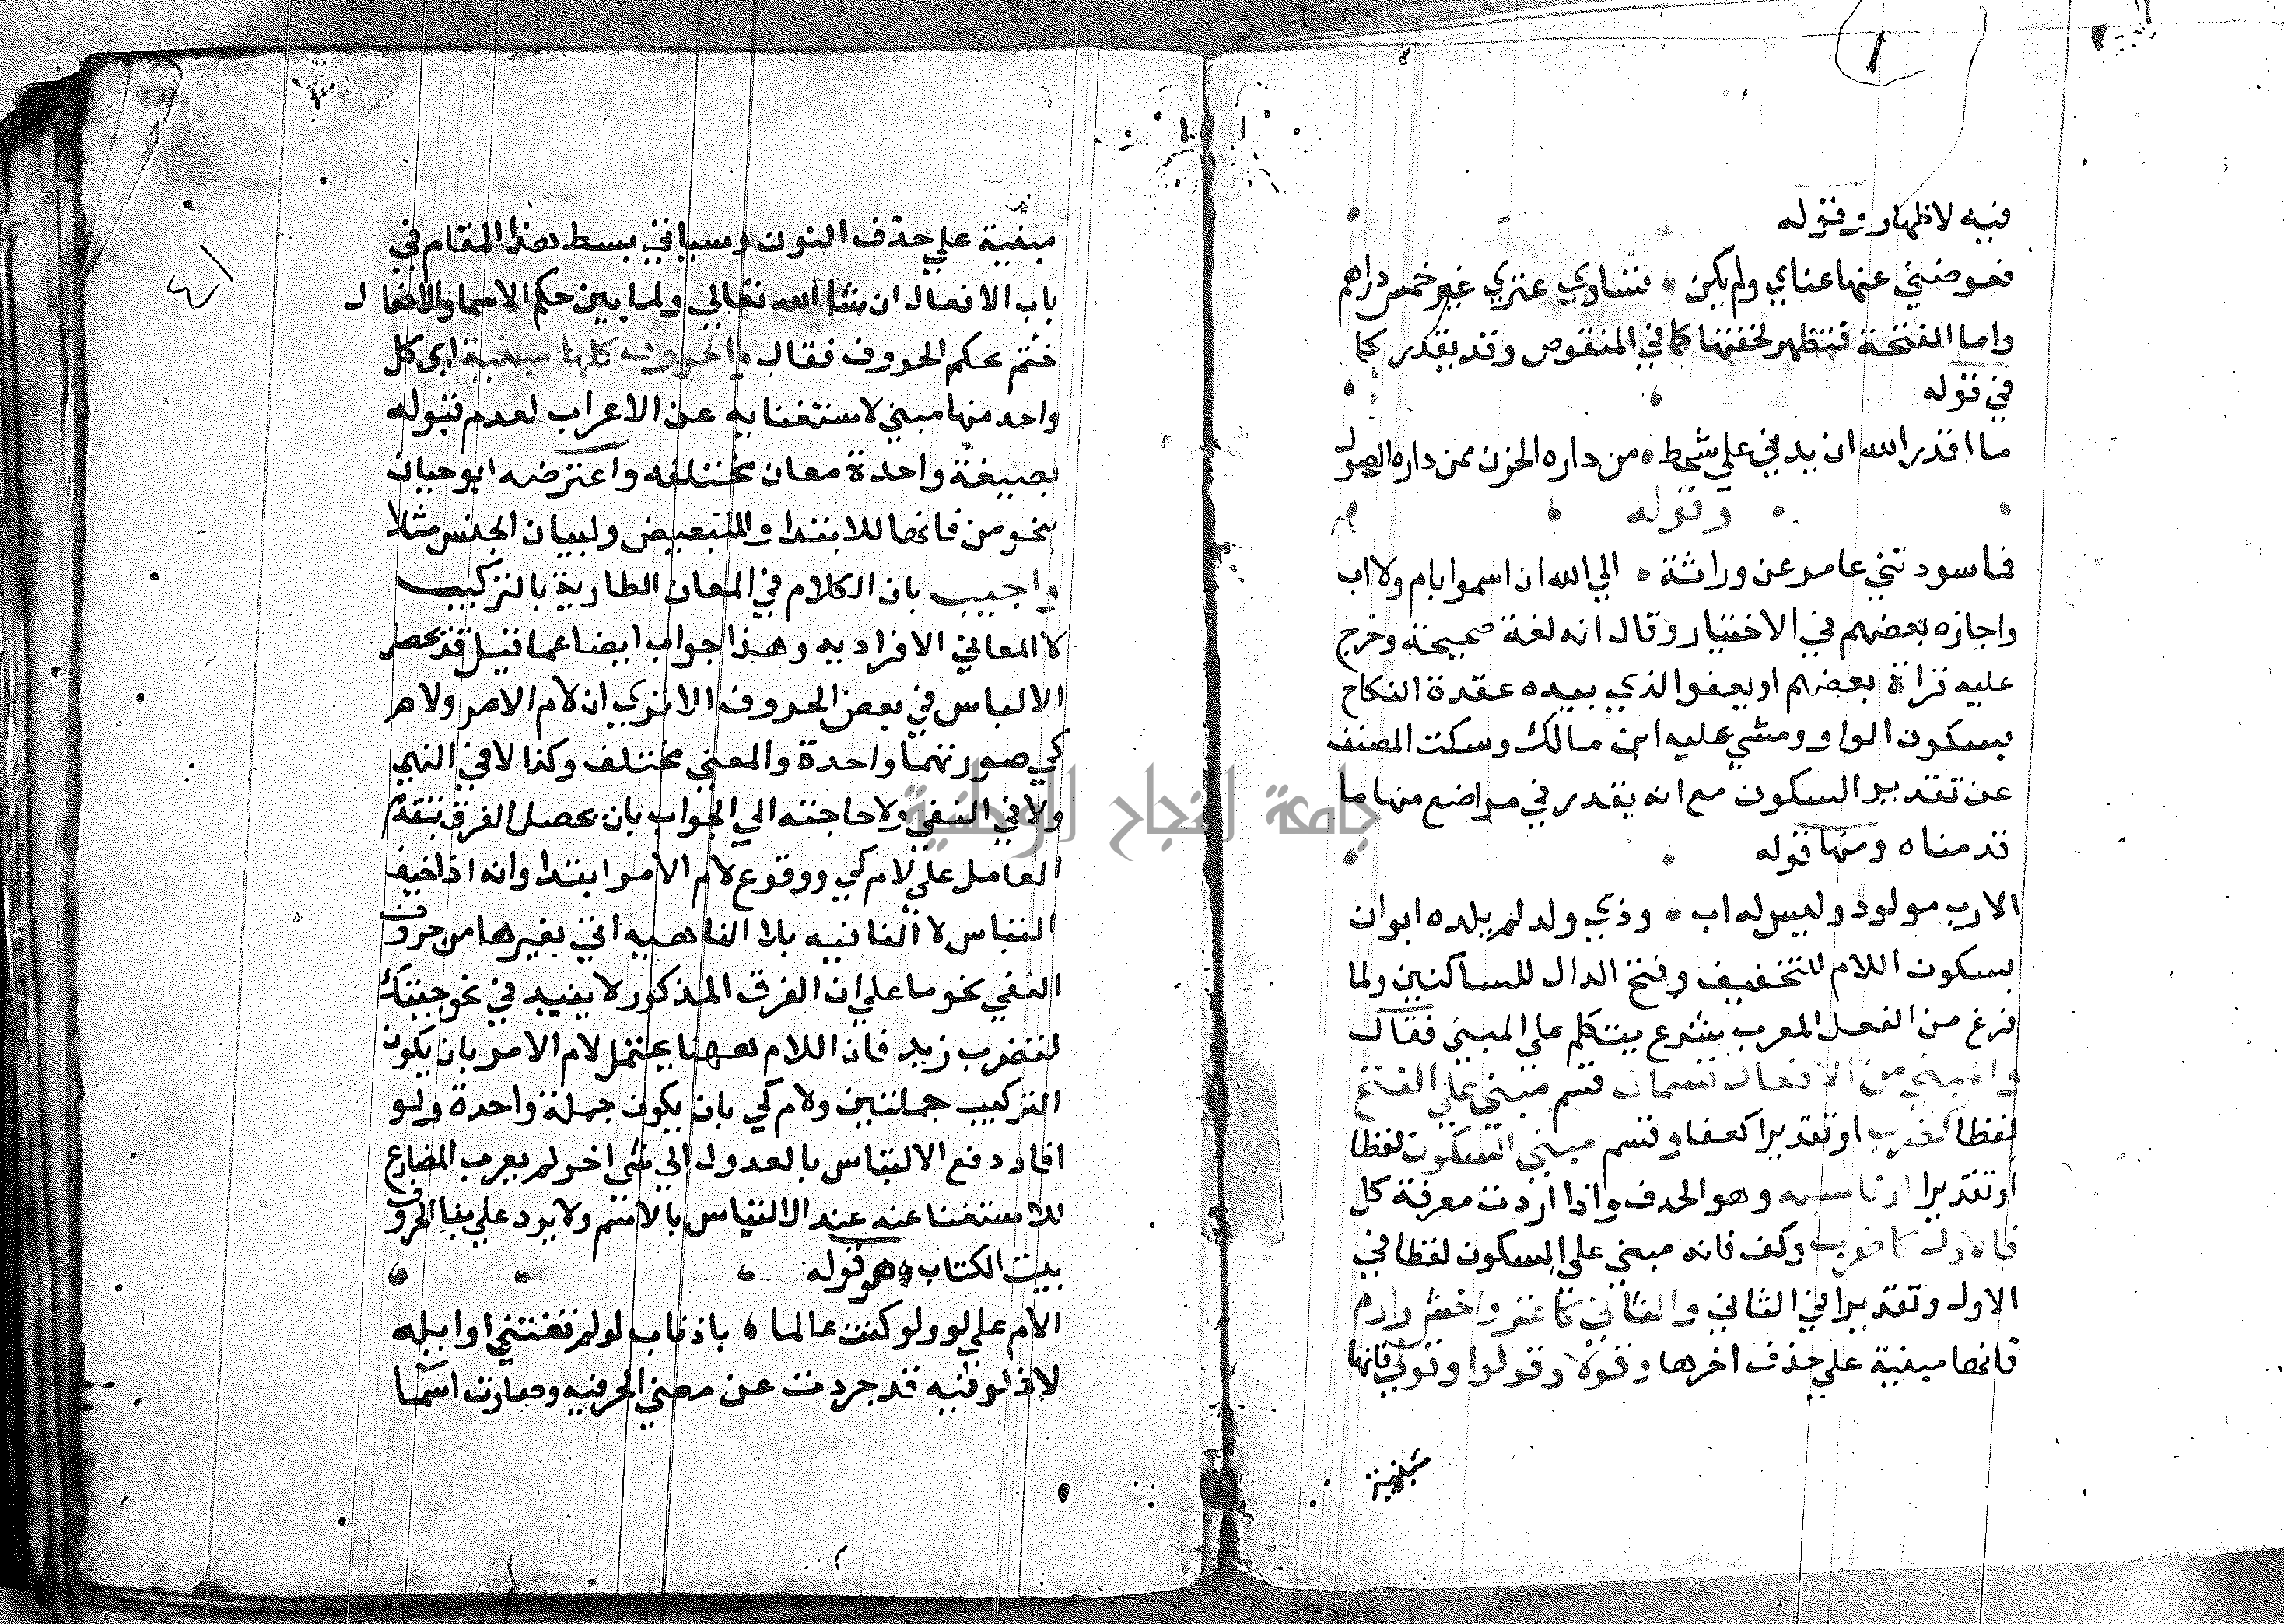 فيه لاظهار وقوله
فعوضني عنها عناي ولم يكن تساوي عنزي غير خمس دراهم
واما الفتحة فتظهر لخفتها كما في المنقوص وقد يقدر كما
في قوله
ما اقدر الله ان يدني علي شحط من داره الحزن ممن داره الصول
وقوله
فما سودتني عامر عن وراثة الي الله ان اسموا بام ولا اب
واجازه بعضهم في الاختيار وقال انه لغة صحيحة وخرج
عليه قراة بعضهم او يعفوا الذي بيده عقدة النكاح
بسكون الواو ومشي عليه ابن مالك وسكت المصنف
عن تقدير السكون مع انه يقدر في مواضع منها ما
قدمناه ومنها قوله
الارب مولود وليس له اب وذي ولد لم يلده ابوان
بسكون اللام للتخفيف وفتح الدال للساكنين ولما
فرغ من الفعل المعرب يشرع يتكلم علي المبني فقال
والمبني من الافعال قسمان قسم مبني علي الفتح
لفظا كضرب او تقديرا كعفا وقسم مبني السكون لفظا
او تقديرا او نا وهو الحدف واذا اردت معرفة كل
فالاول كاضرب وكف فانه مبني علي السكون لفظا في
الاول وتقديرا في الثاني والثاني كاغز واخش وارم
فانها مبنية علي حذف اخرها وقولا وقولوا وقولي فانها
مبنية
١
٤١
مبنية علي حذف النون وسياتي بسط هذا المقام في
باب الافعال ان شا الله تعالي ولما بين حكم الاسما والافعال
ختم بحكم الحروف فقال والحروف كلها مبنية اي كل
واحد منها مبني لاستغنايه عن الاعراب لعدم قبوله
بصيغة واحدة معان مختلفه واعترضه ابو حيان
بنحو من فانها للابتدا والتبعيض ولبيان الجنس مثلا
واجيب بان الكلام في المعان الطارية بالتركيب
لا المعاني الافراديه وهذا جواب ايضا عما قيل قد يحصل
الالباس في بعض الحروف الاتري ان لام الامر ولام
كي صورتهما واحدة والمعني مختلف وكذا لا في النهي
ولا في النفي ولا حاجته الي الجواب بان يحصل الفرق بتقدم
العامل علي لام كي ووقوع لام الامر ابتدا وانه اذا خيف
التباس لا النافيه بلا الناهيه اتي بغيرها من حروف
النفي نحو ما علي ان الفرق المذكور لا يفيد في نحو جيتك
لتضرب زيد فان اللام هاهنا يحتمل لام الامر بان يكون
التركيب جملتين ولام كي بان يكون جملة واحدة ولو
افاد دفع الالتباس بالعدول الي شي اخر لم يعرب المضارع
للاستغنا عنه عند الالتباس بالاسم ولا يرد علي بنا الحروف
بيت الكتاب وهو قوله
الام علي لو ولو كنت عالما باذناب لو لم تفتني اوايله
لان لو فيه قد جردت عن معني الحرفيه وصارت اسما
جامعة النجاح الوطنية